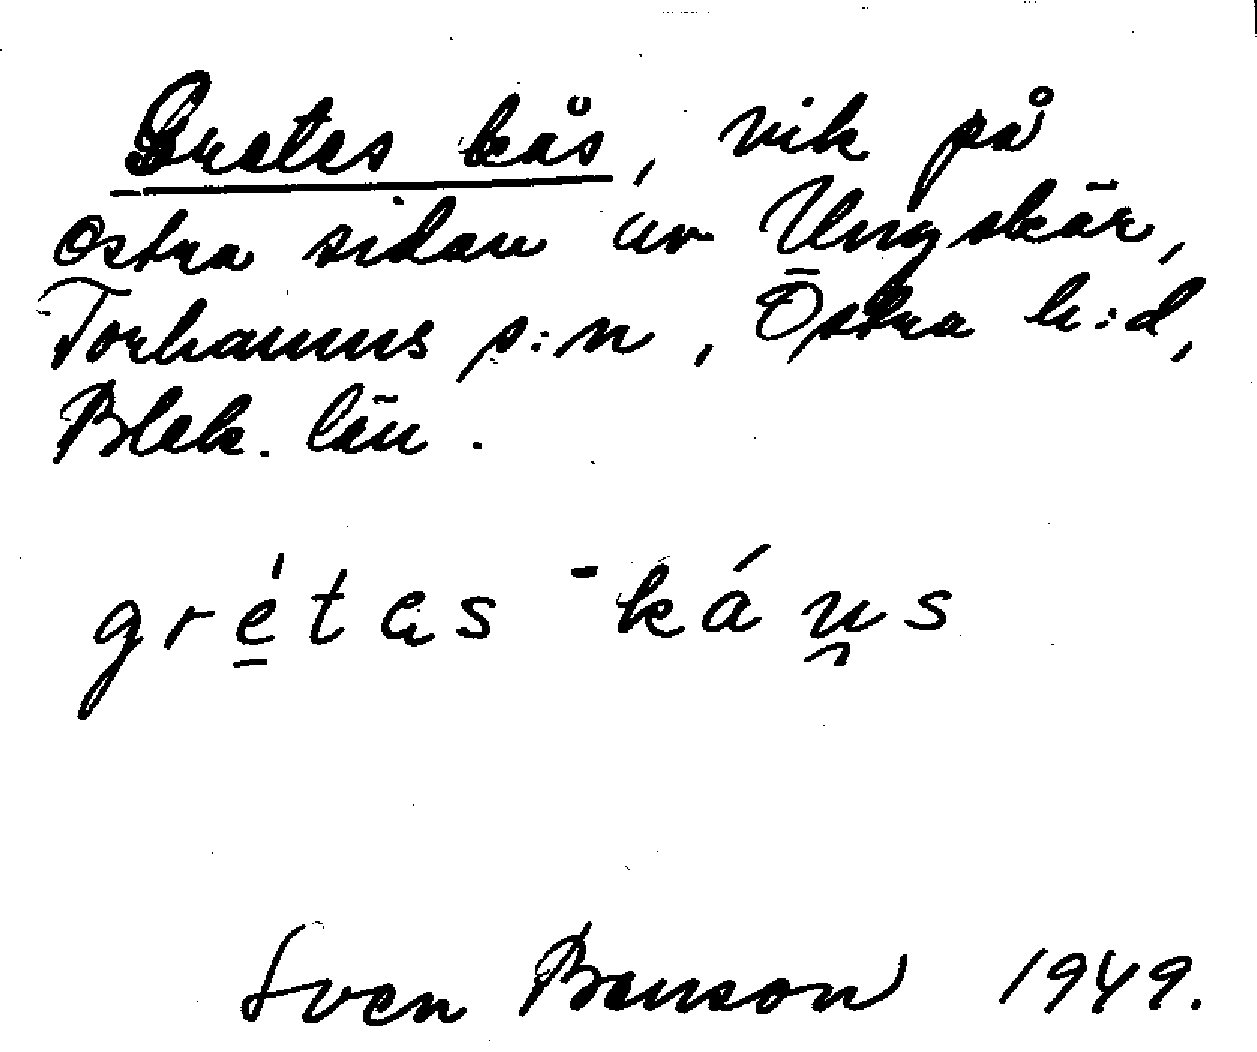 Gretes kås, vik på
östra sidan av Ungskär,
Torhamns s:n, Östra h:d,
Blek. län.
grétas -káus
Sven Benson 1949.